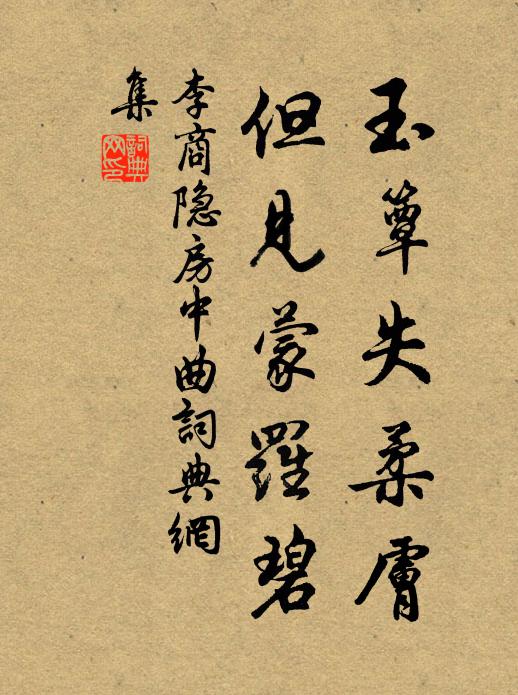 玉簟失柔膚
但見蒙羅碧
李商隐房中曲詞典網
集
詞典
网印